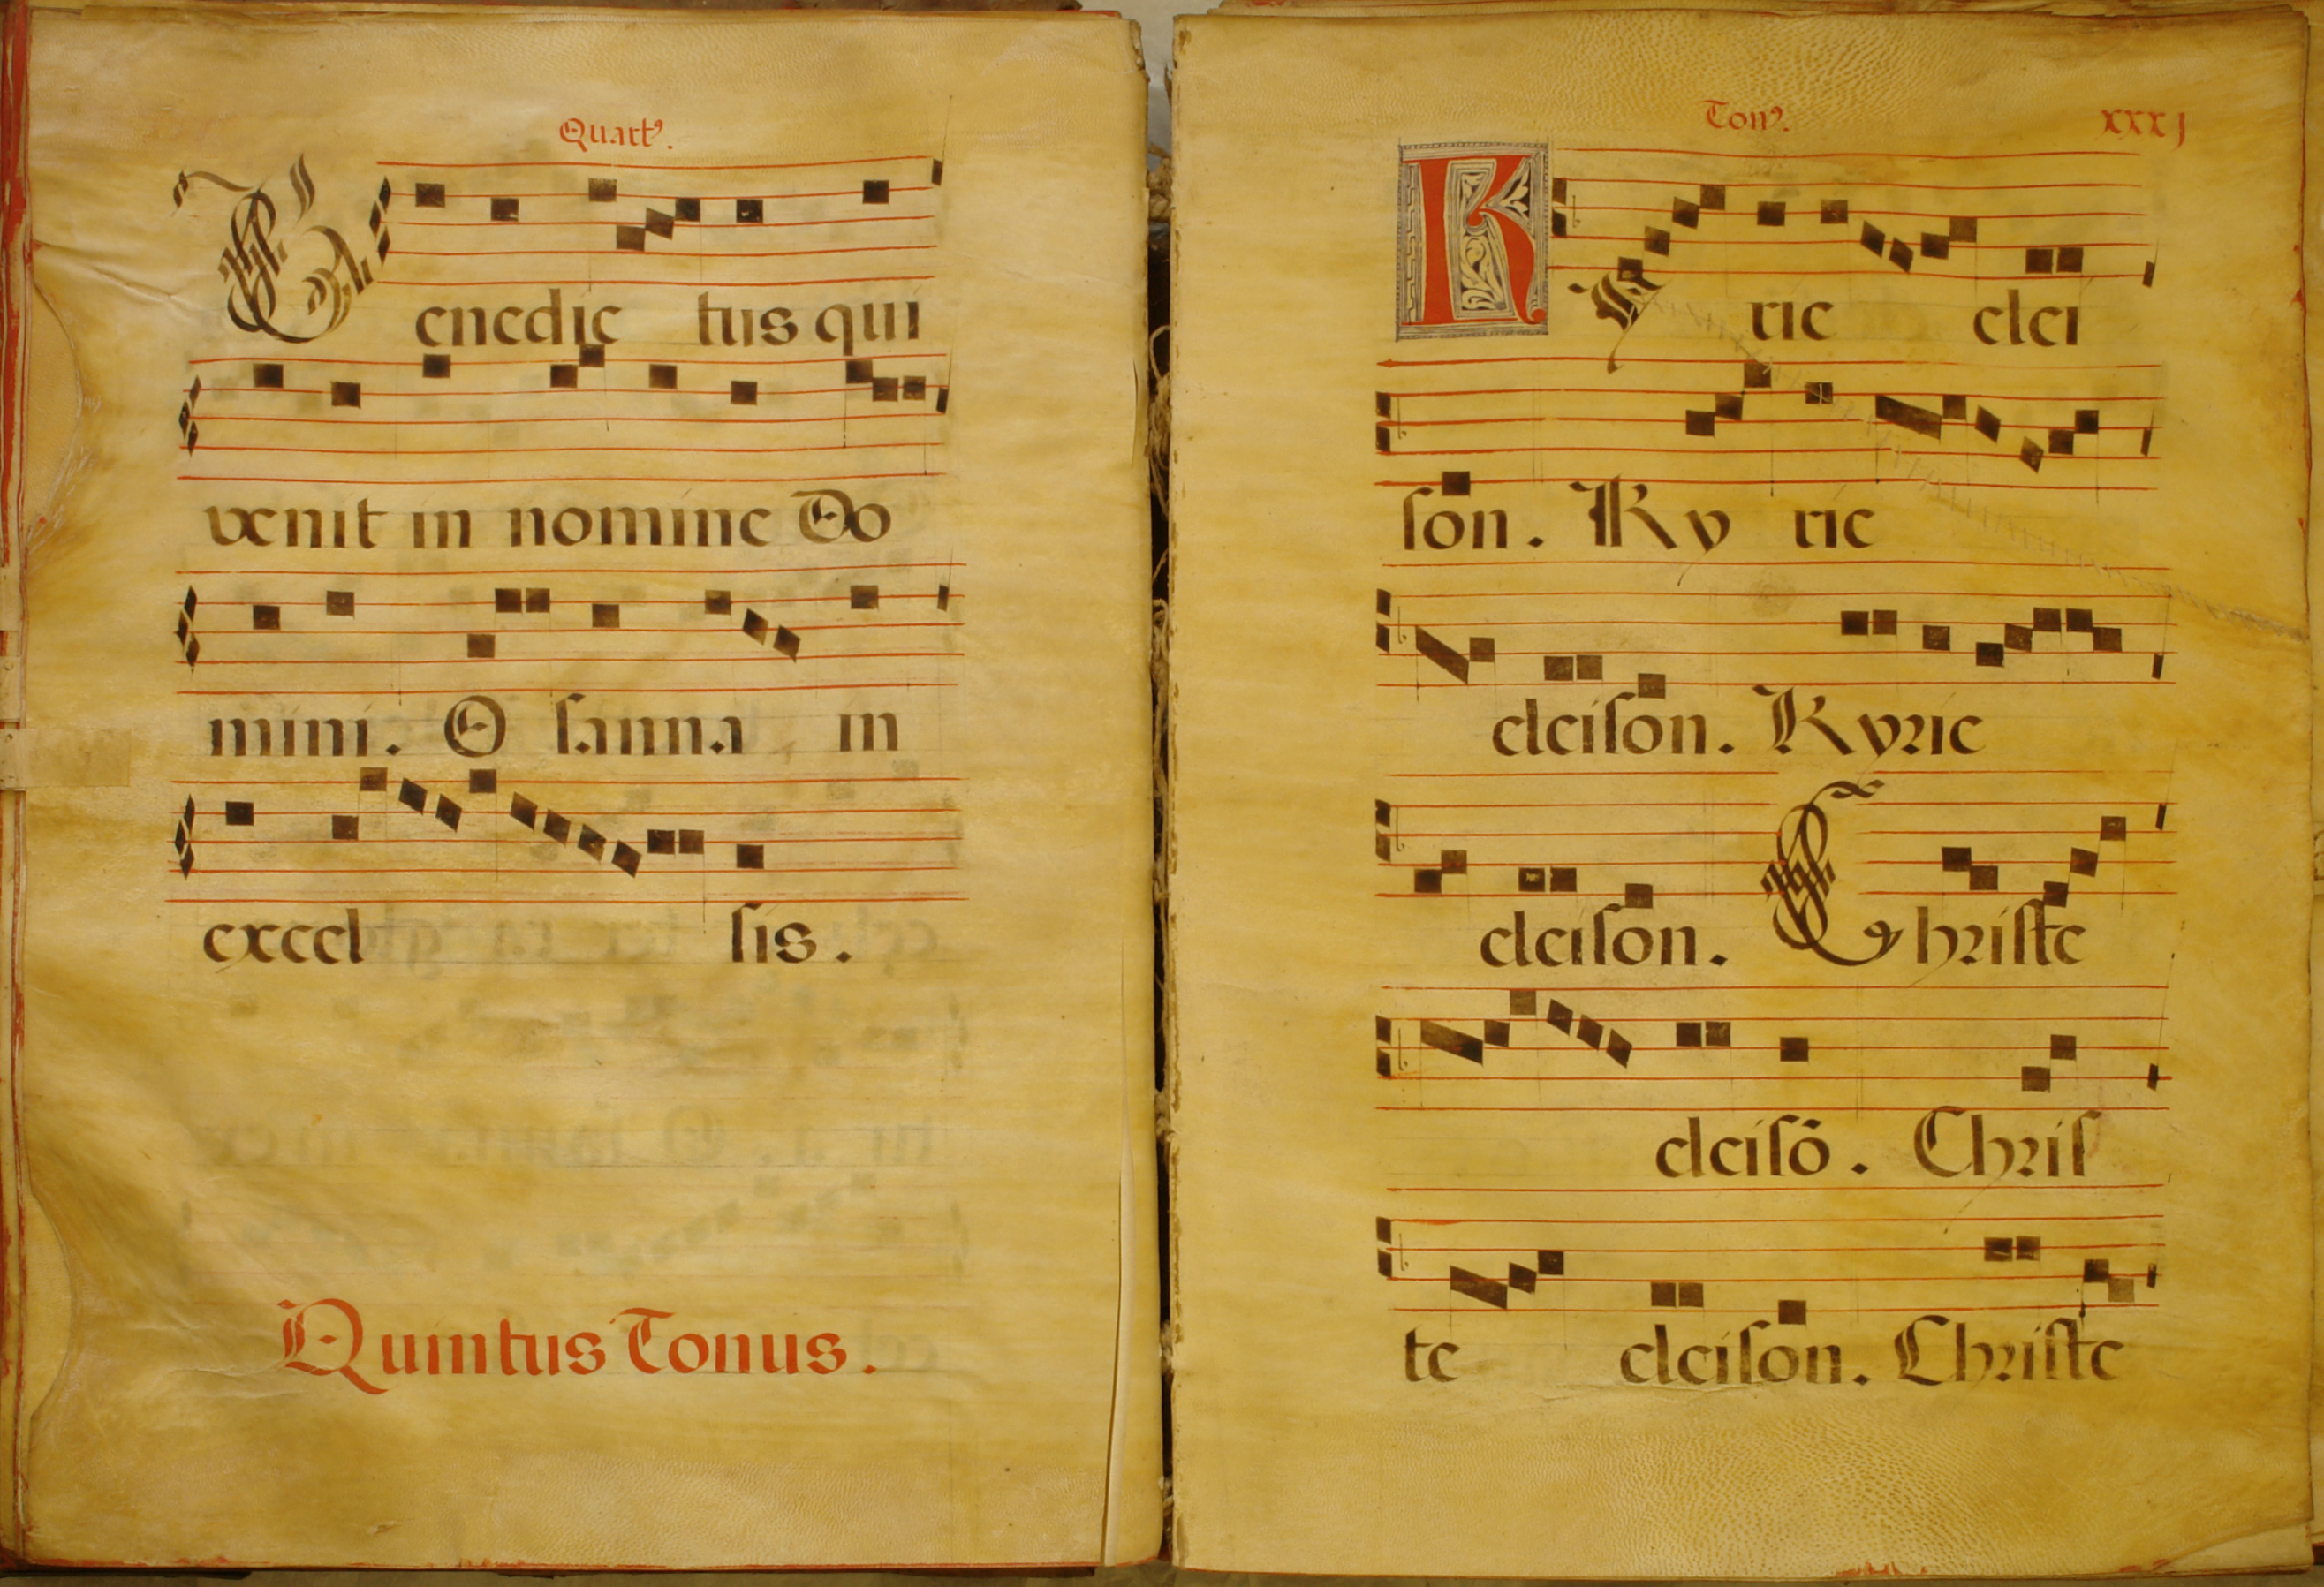 Quartꝰ.
Benedic tus qui
venit in nomine Do
mini. O ſanna in
excel ſis.
Quintus Tonus.
Tonꝰ. xxxj
Ky rie elei
ſon. Ky rie
eleiſon. Kyrie
eleiſon. Chriſte
eleiſō. Chriſ
te eleiſon. Chriſte